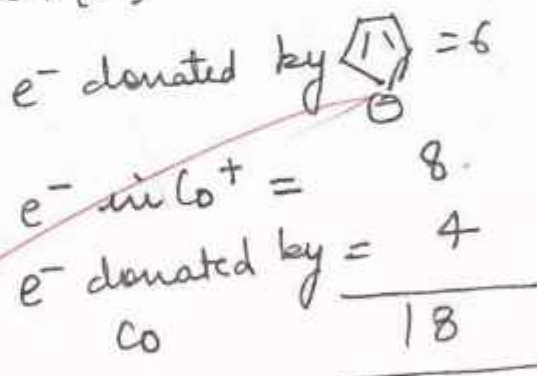 e⁻ donated by = 6
e⁻ in Co⁺ = 8.
e⁻ donated by = 4
Co
18